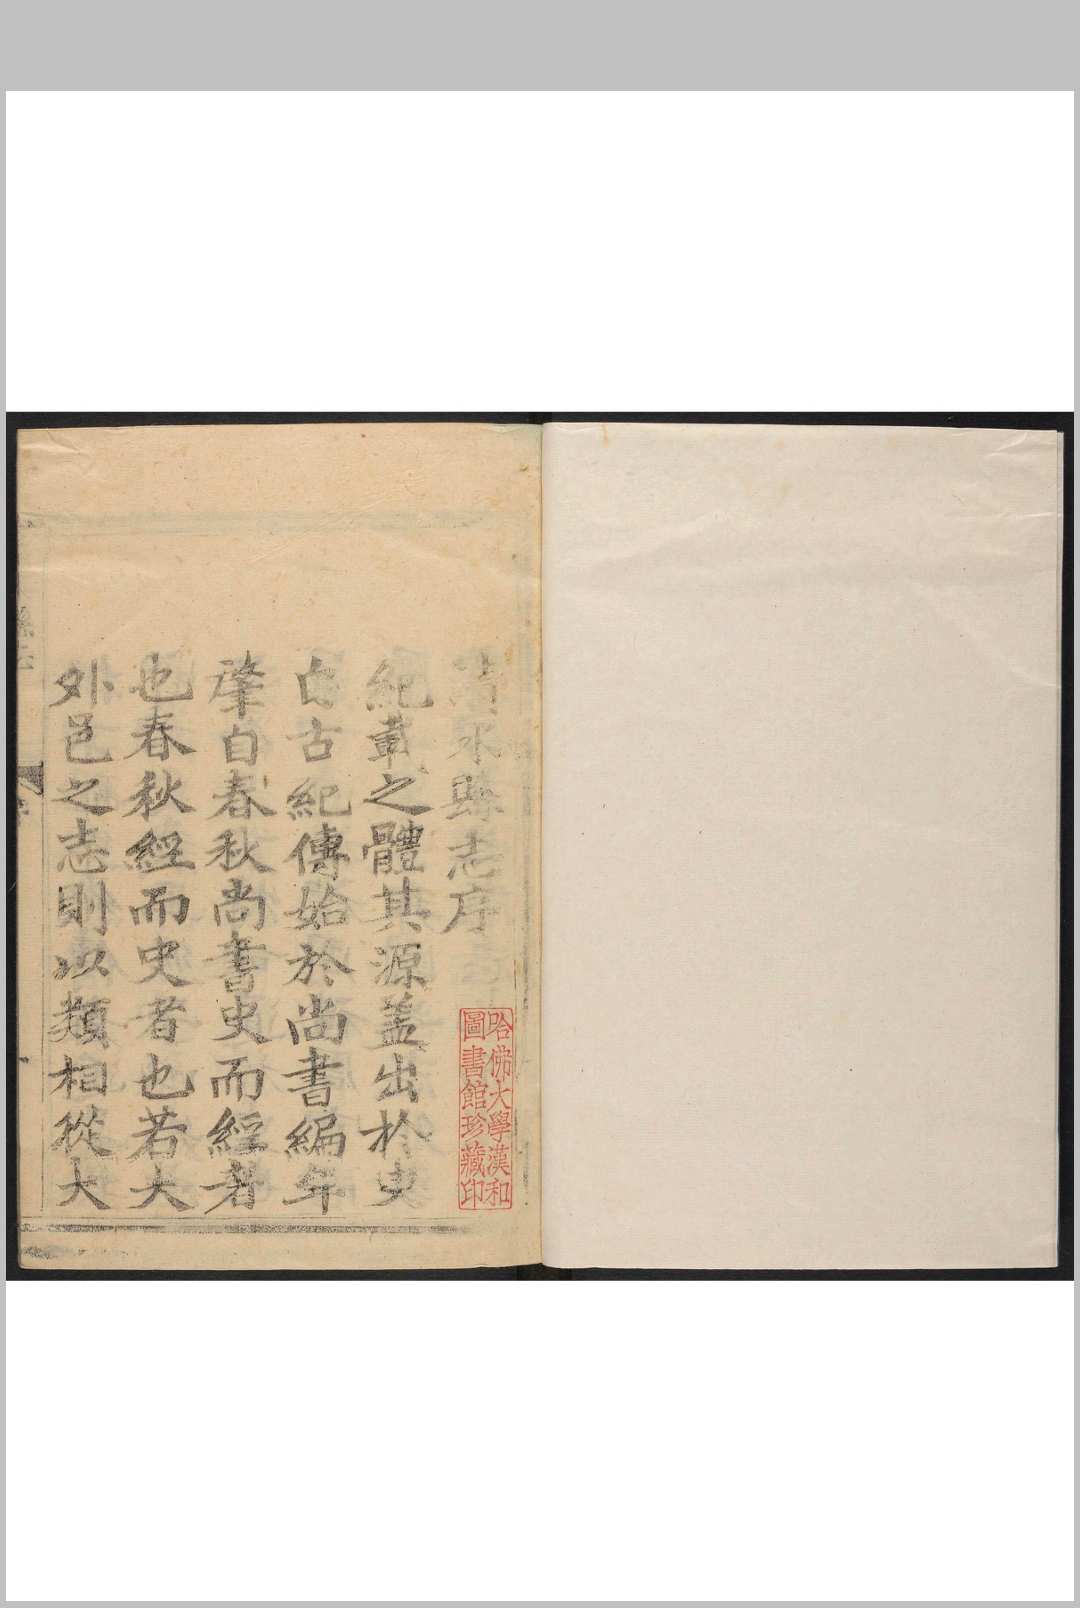 水縣志序
哈佛大學漢和
圖書館珍藏印
紀載之體其源盖出於史
自古紀傳始於尚書編年
肇自春秋尚書史而經者
也春秋經而史者也若大
外邑之志則以類相從大